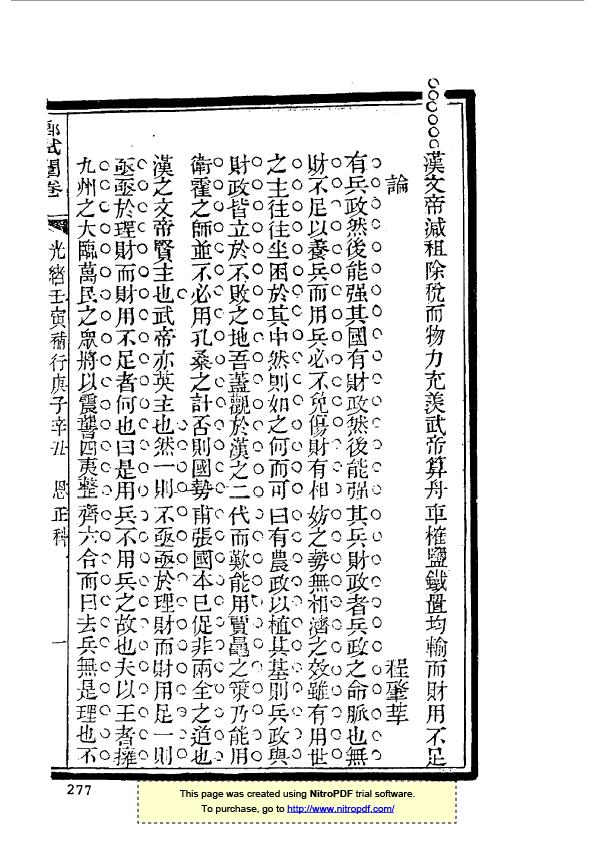 漢文帝減租除稅而物力充羨武帝算舟車榷鹽鐵置均輸而財用不足
論
程肇
有兵政然後能强其國有財政然後能强其兵財政者兵政之命脈也無
財不足以養兵而用兵必不免傷財有相妨之勢無相濟之效雖有用世
之主往往坐困於其中然則如之何而可曰有農政以植其基則兵政與
財政皆立於不敗之地吾蓋觀於漢之二代而歎能用賈鼂之策乃能用
衛霍之師並不必用孔桑之計否則國勢甫張國本已促非兩全之道也
漢之文帝賢主也武帝亦英主也然一則不亟亟於理財而財用足一則
亟亟於理財而財用不足者何也曰是用兵不用兵之故也夫以王者擁
九州之大臨萬民之眾將以震讋四夷整齊六合而曰去兵無是理也不
鄉試闈卷 光緒壬寅補行庚子辛丑 恩正科 一
277
This page was created using NitroPDF trial software.
To purchase, go to http://www.nitropdf.com/